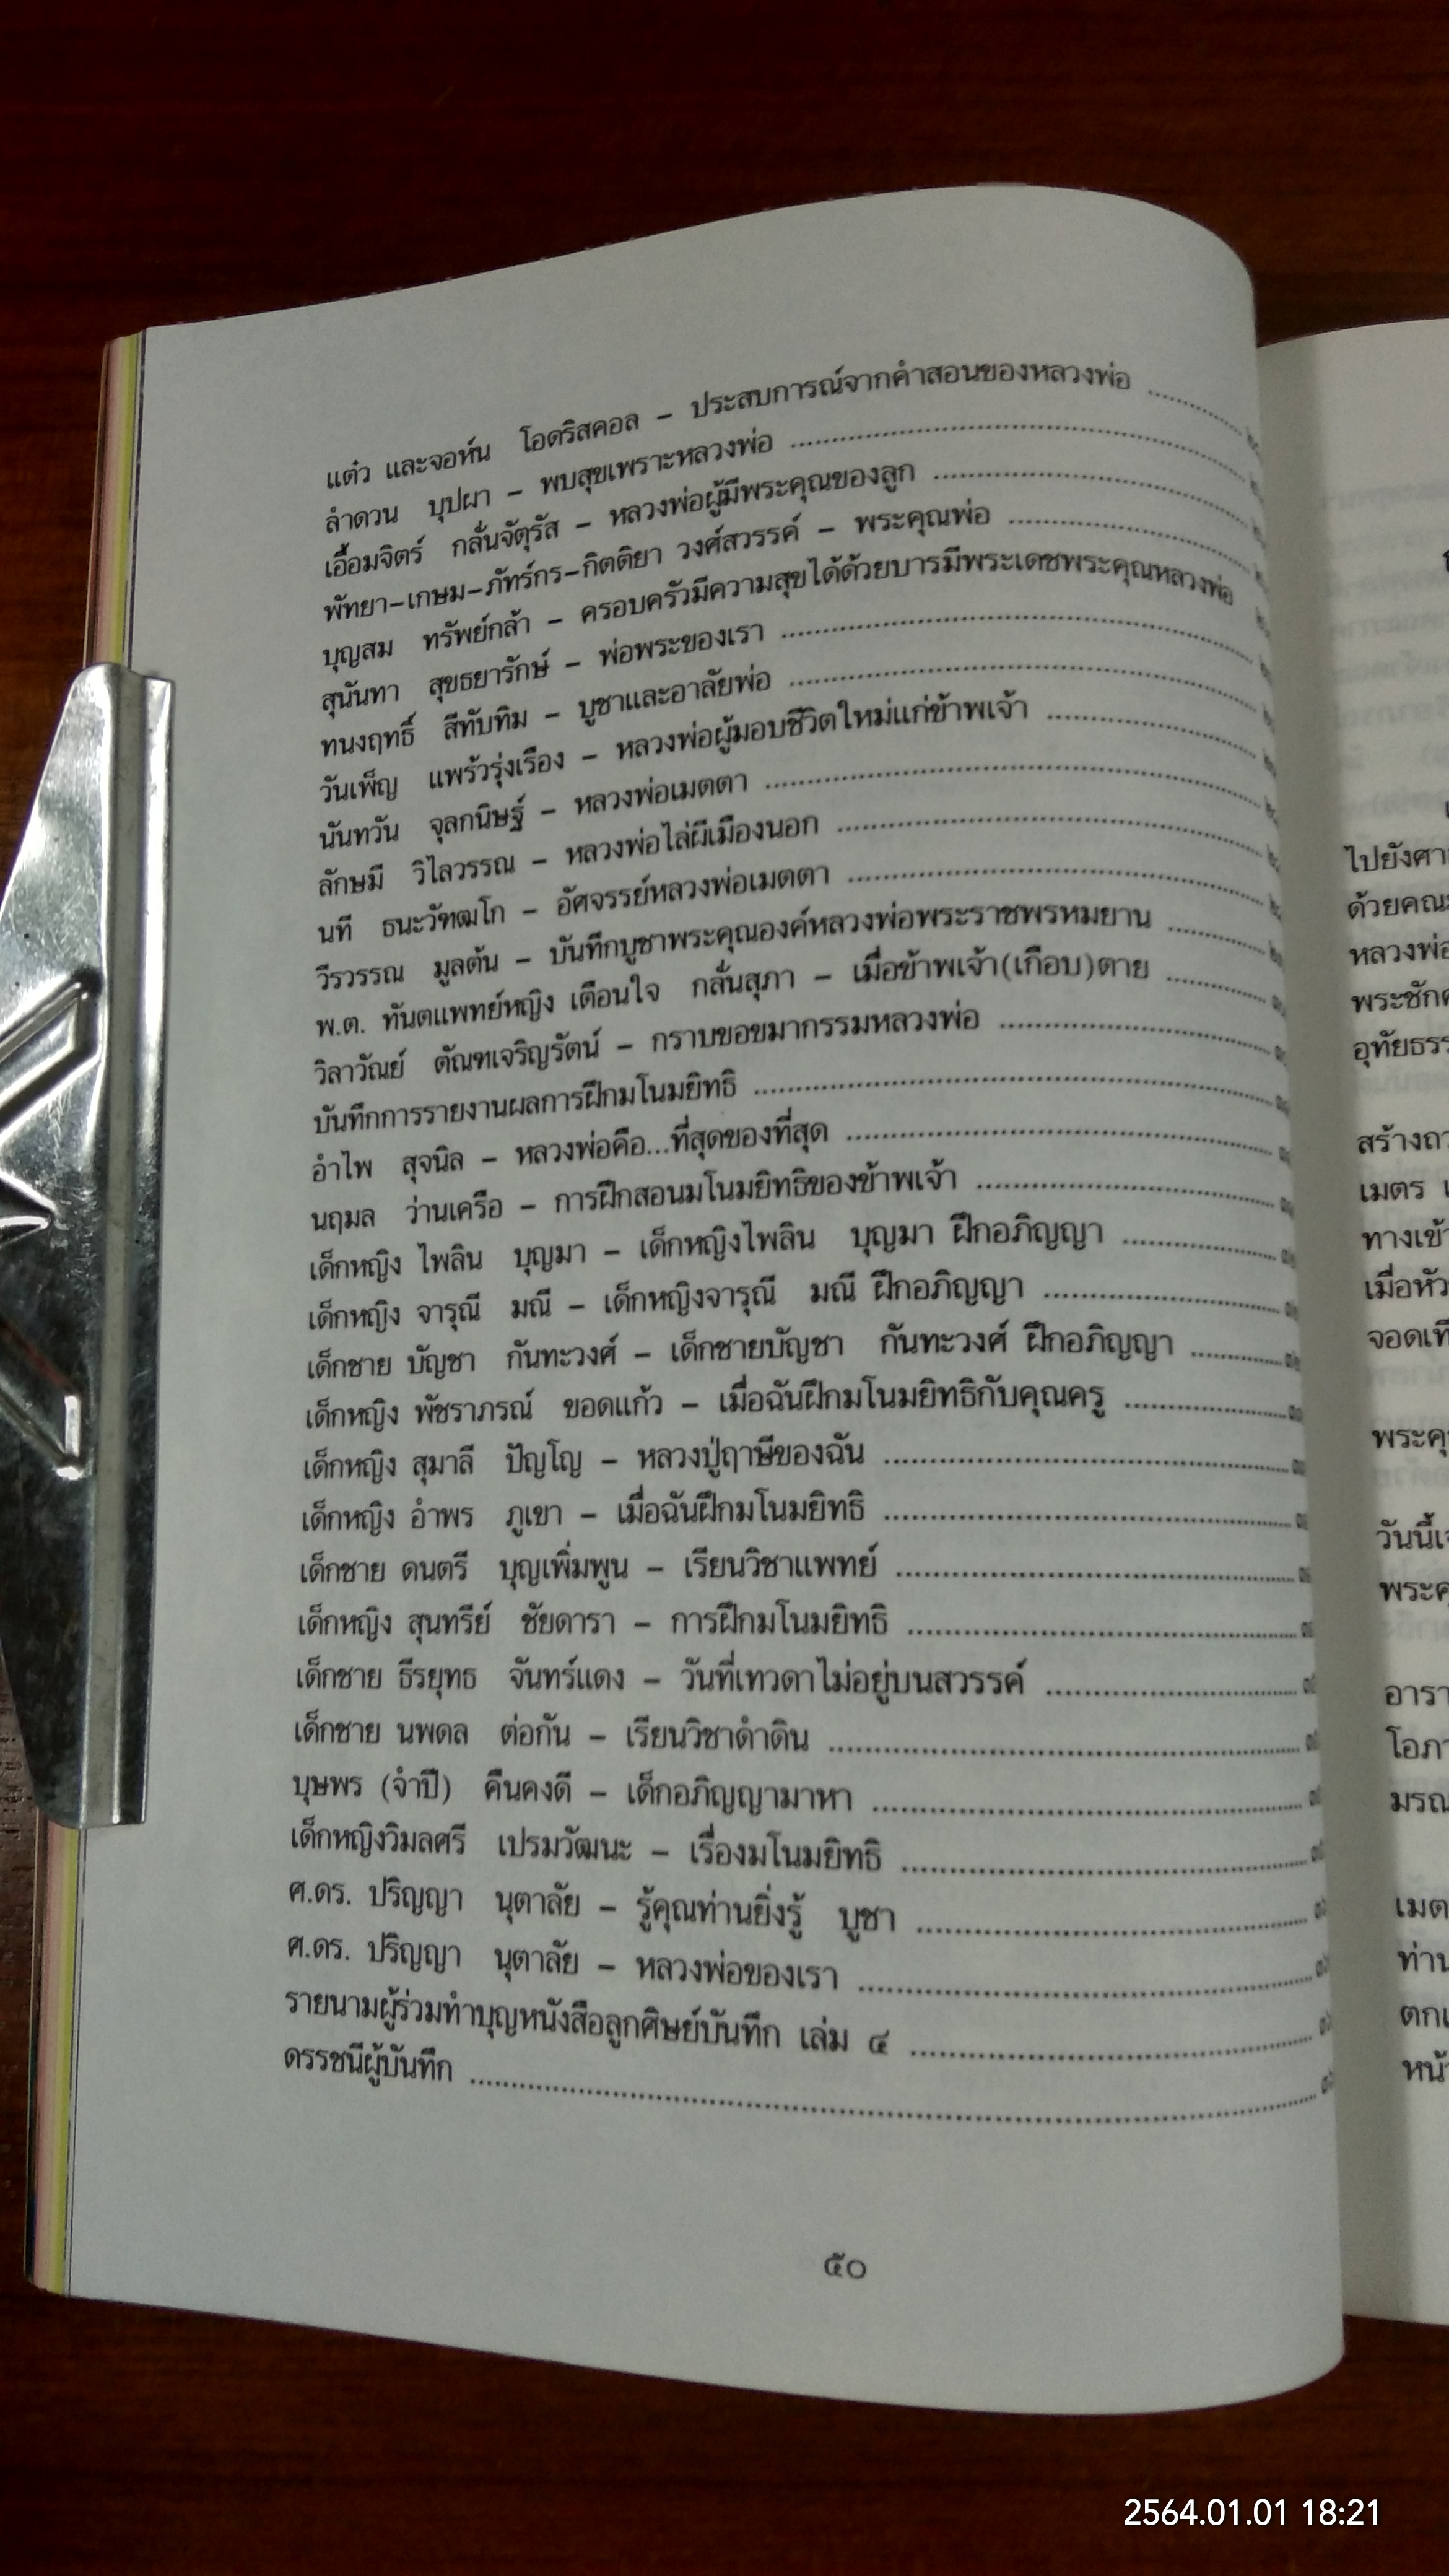 แต๋ว และจอห์น โอดริสคอล – ประสบการณ์จากคำสอนของหลวงพ่อ
ลำดวน บุปผา – พบสุขเพราะหลวงพ่อ
เอื้อมจิตร์ กลั่นจัตุรัส – หลวงพ่อผู้มีพระคุณของลูก
พัทยา–เกษม–ภัทร์กร–กิตติยา วงศ์สวรรค์ – พระคุณพ่อ
บุญสม ทรัพย์กล้า – ครอบครัวมีความสุขได้ด้วยบารมีพระเดชพระคุณหลวงพ่อ
สุนันทา สุขธยารักษ์ – พ่อพระของเรา
ทนงฤทธิ์ สีทับทิม – บูชาและอาลัยพ่อ
วันเพ็ญ แพร้วรุ่งเรือง – หลวงพ่อผู้มอบชีวิตใหม่แก่ข้าพเจ้า
นันทวัน จุลกนิษฐ์ – หลวงพ่อเมตตา
ลักษมี วิไลวรรณ – หลวงพ่อไล่ผีเมืองนอก
นที ธนะวัฑฒโก – อัศจรรย์หลวงพ่อเมตตา
วีรวรรณ มูลต้น – บันทึกบูชาพระคุณองค์หลวงพ่อพระราชพรหมยาน
พ.ต. ทันตแพทย์หญิง เตือนใจ กลั่นสุภา – เมื่อข้าพเจ้า(เกือบ)ตาย
วิลาวัณย์ ตัณฑเจริญรัตน์ – กราบขอขมากรรมหลวงพ่อ
บันทึกการรายงานผลการฝึกมโนมยิทธิ
อำไพ สุจนิล – หลวงพ่อคือ...ที่สุดของที่สุด
นฤมล ว่านเครือ – การฝึกสอนมโนมยิทธิของข้าพเจ้า
เด็กหญิง ไพลิน บุญมา – เด็กหญิงไพลิน บุญมา ฝึกอภิญญา
เด็กหญิง จารุณี มณี – เด็กหญิงจารุณี มณี ฝึกอภิญญา
เด็กชาย บัญชา กันทะวงศ์ – เด็กชายบัญชา กันทะวงศ์ ฝึกอภิญญา
เด็กหญิง พัชราภรณ์ ขอดแก้ว – เมื่อฉันฝึกมโนมยิทธิกับคุณครู
เด็กหญิง สุมาลี ปัญโญ – หลวงปู่ฤาษีของฉัน
เด็กหญิง อำพร ภูเขา – เมื่อฉันฝึกมโนมยิทธิ
เด็กชาย ดนตรี บุญเพิ่มพูน – เรียนวิชาแพทย์
เด็กหญิง สุนทรีย์ ชัยดารา – การฝึกมโนมยิทธิ
เด็กชาย ธีรยุทธ จันทร์แดง – วันที่เทวดาไม่อยู่บนสวรรค์
เด็กชาย นพดล ต่อกัน – เรียนวิชาดำดิน
บุษพร (จำปี) คืนคงดี – เด็กอภิญญามาหา
เด็กหญิงวิมลศรี เปรมวัฒนะ – เรื่องมโนมยิทธิ
ศ.ดร. ปริญญา นุตาลัย – รู้คุณท่านยิ่งรู้ บูชา
ศ.ดร. ปริญญา นุตาลัย – หลวงพ่อของเรา
รายนามผู้ร่วมทำบุญหนังสือลูกศิษย์บันทึก เล่ม ๔
ดรรชนีผู้บันทึก
๕๐
ไปยังศา
ด้วยคณะ
หลวงพ่อ
พระชัก
อุทัยธรร
สร้างถว
เมตร
ทางเข้า
เมื่อหัว
จอดเที
พระคุ
วันนี้เ
พระคุ
อารา
โอภา
มรณ
เมต
ท่าน
ตก
หน้
2564.01.01 18:21